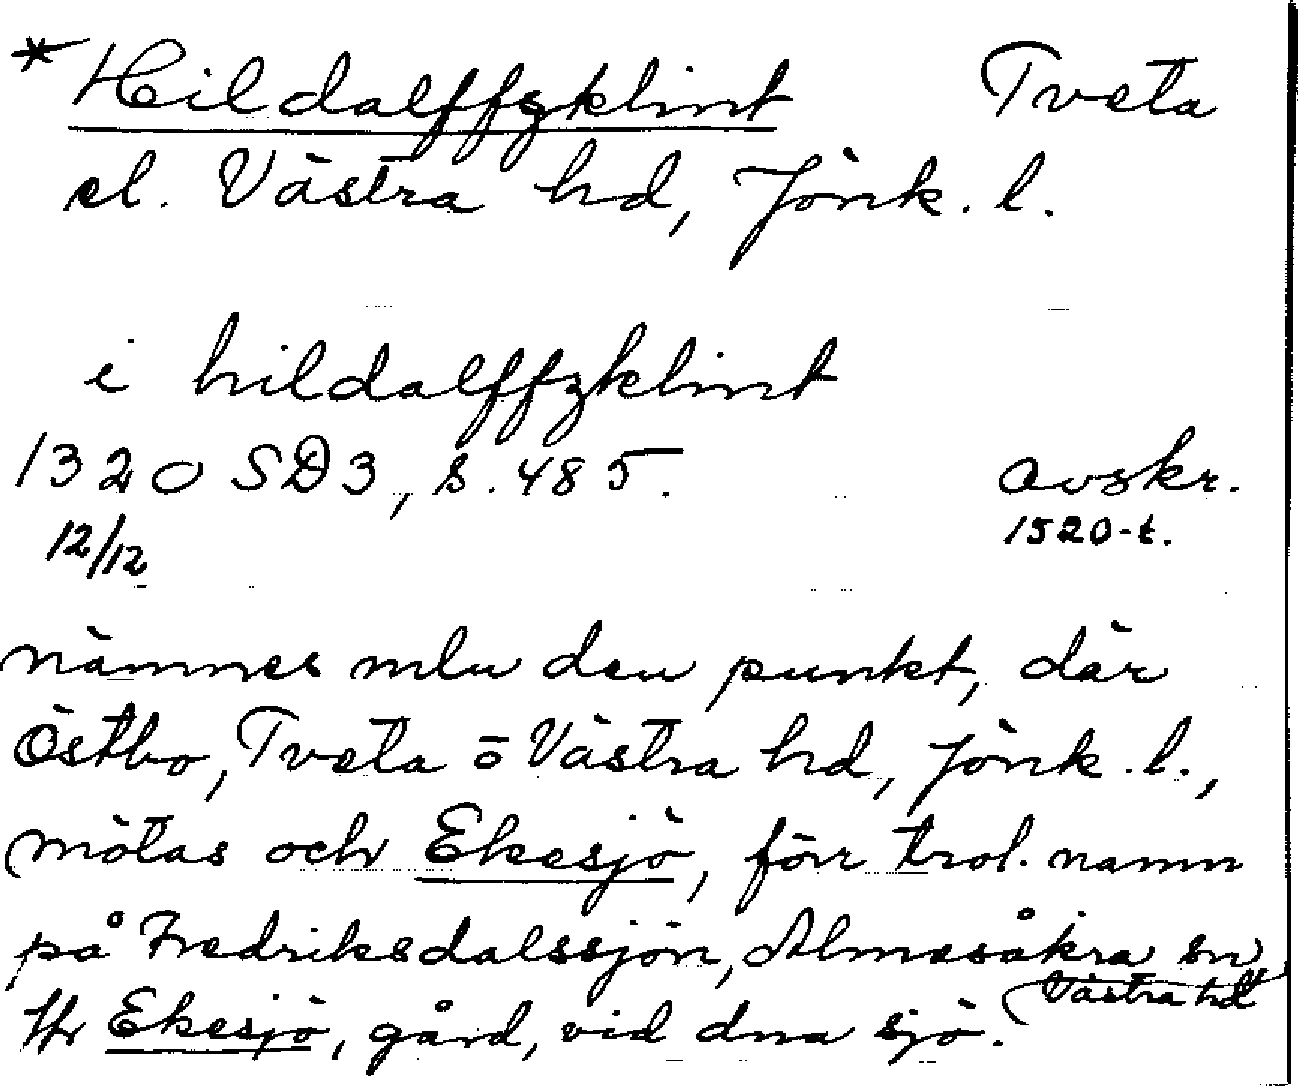 * Hildalffzklint Tveta
el. Västra hd, Jönk. l.
i hildalffzklint
1320 SD3, s. 485. Avskr.
12/12 1520-t.
nämnes mlu den punkt, där
Östbo, Tveta o Västra hd, Jönk. l.,
mötas och Ekesjö, förr trol. namn
på Fredriksdalssjön, Almesåkra sn
Västra hd
Jfr Ekesjö, gård, vid dna sjö.